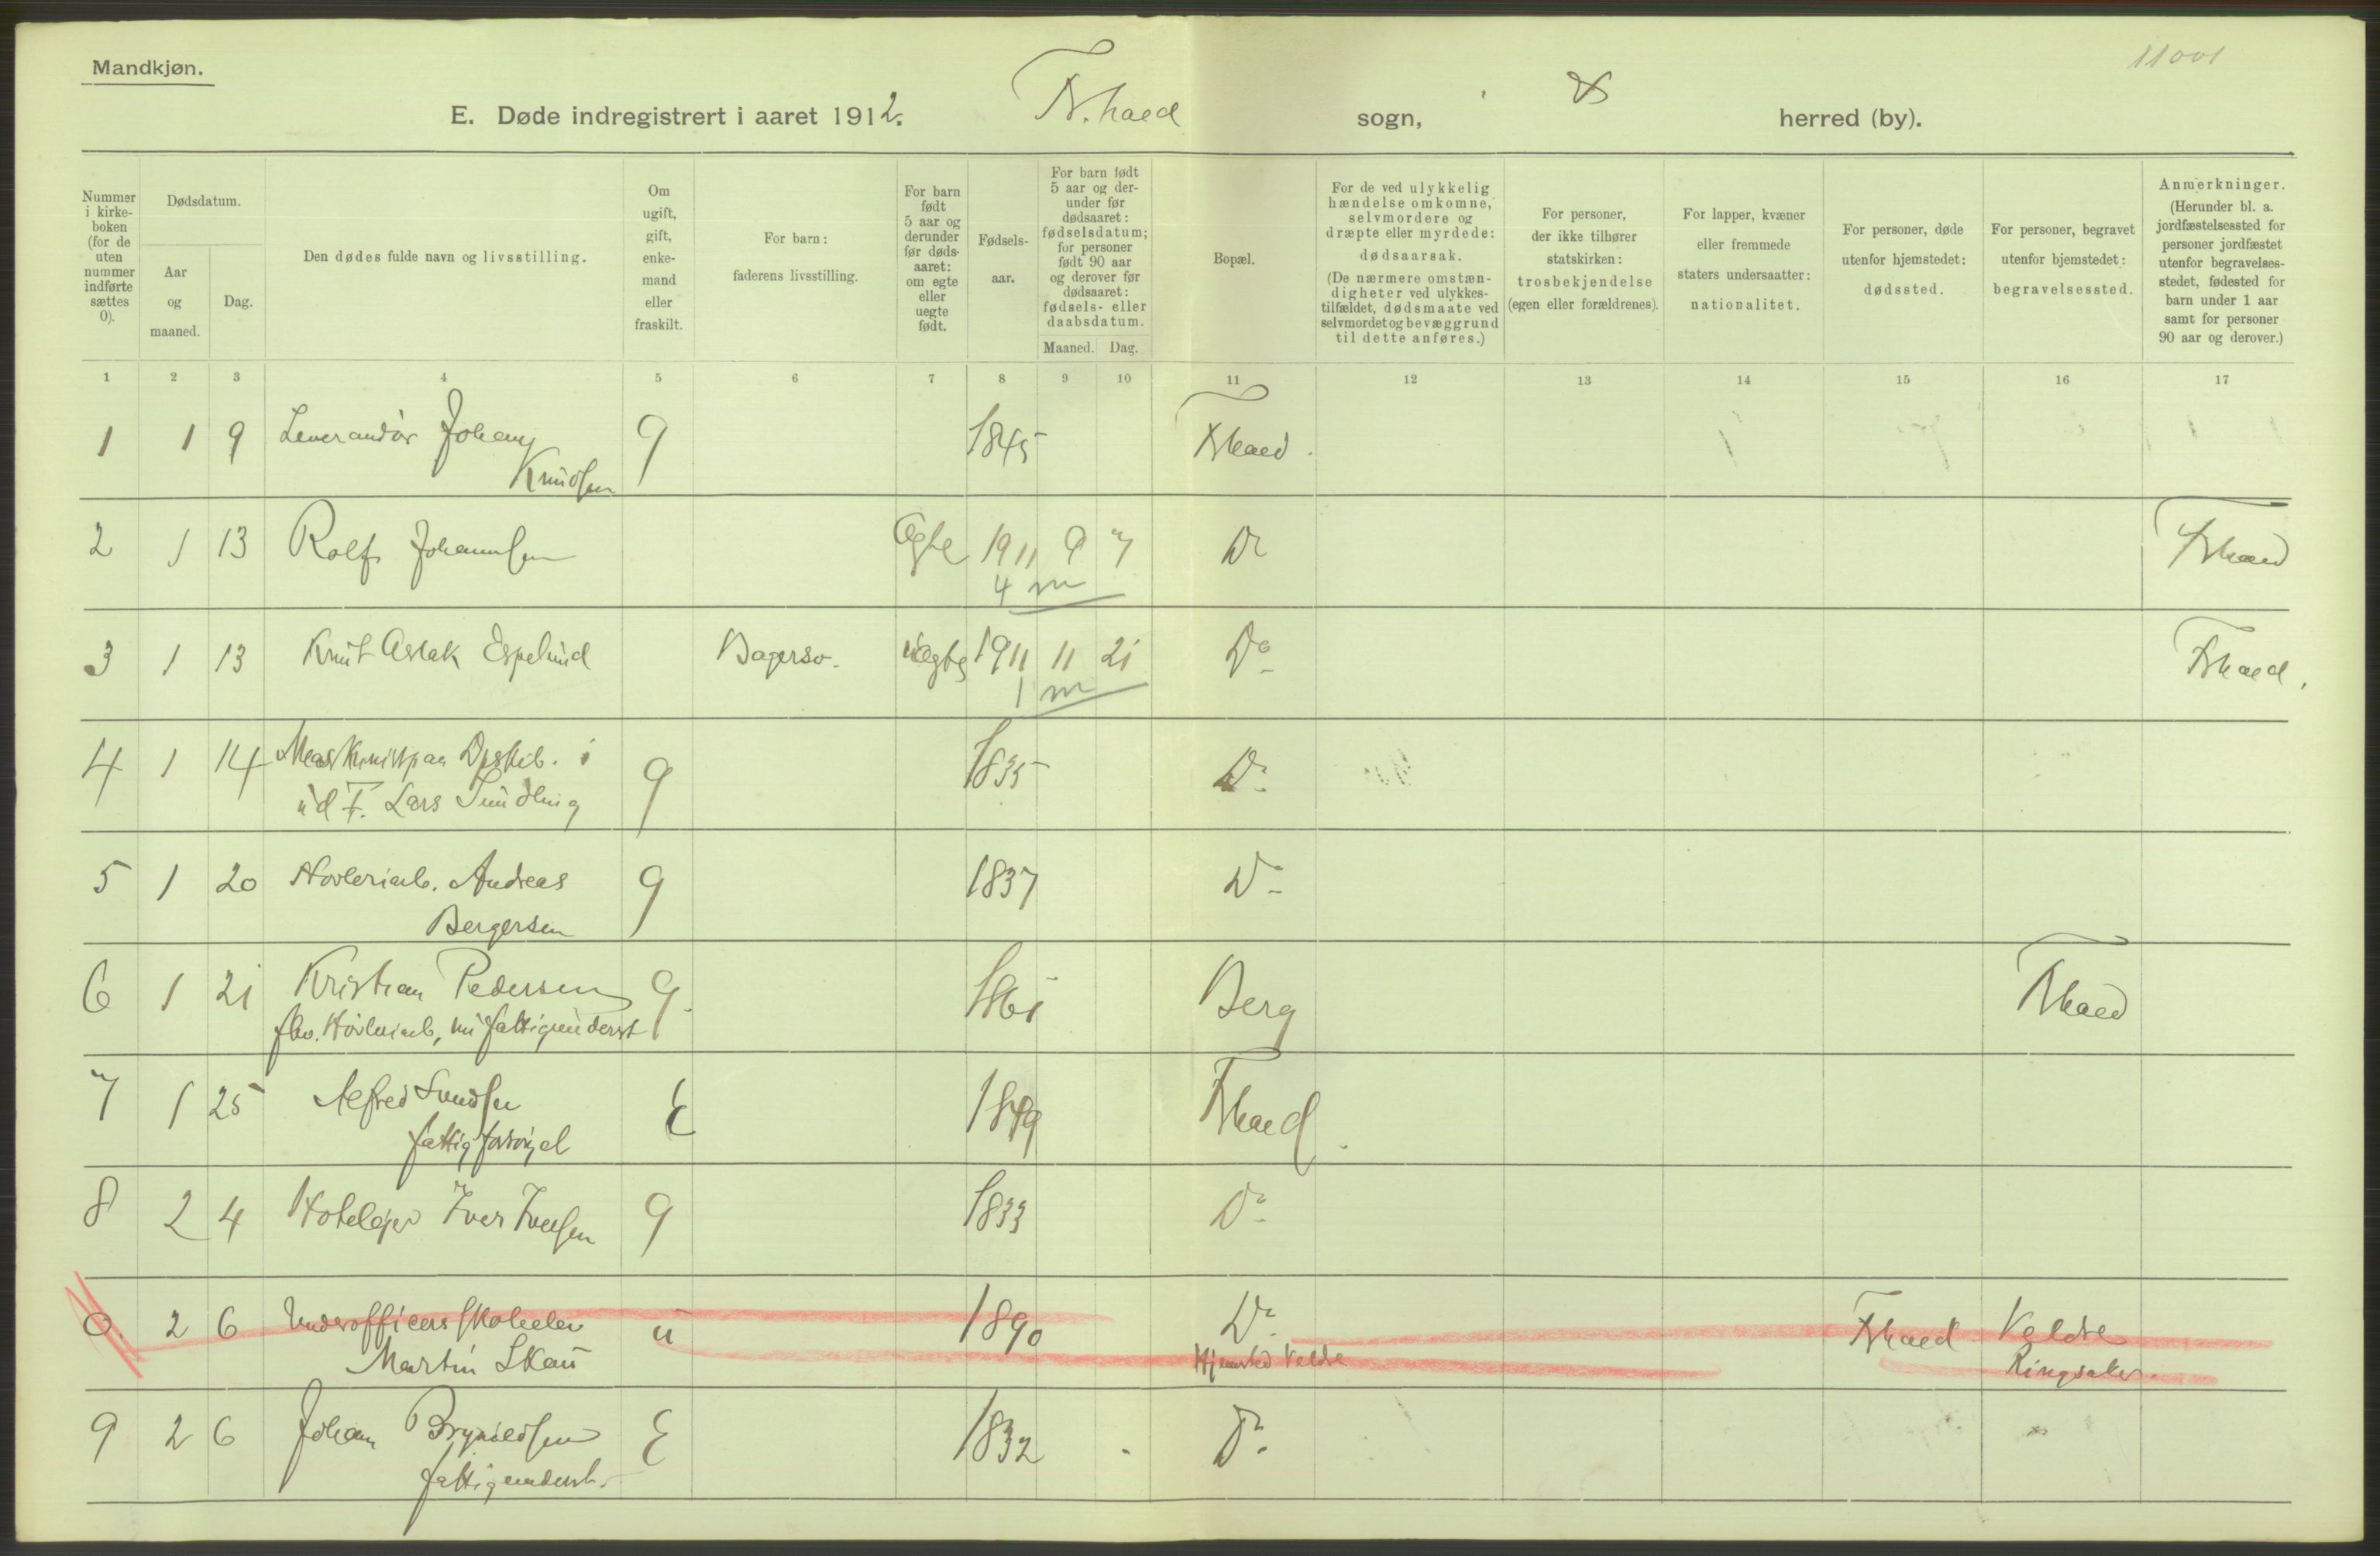 Mandkjøn.
11001
E. Døde indregistrert i aaret 1912. Frhald sogn, herred (by).
Nummer i kirke-boken (for de uten nummer indførte sættes 0).
Dødsdatum.
Aar og maaned.
Dag.
Den dødes fulde navn og livsstilling.
Om ugift, gift, enke-mand eller fraskilt.
For barn: faderens livsstilling.
For barn født 5 aar og derunder før døds-aaret: om egte eller uegte født.
Fødsels-aar.
For barn født 5 aar og der-under før dødsaaret: fødselsdatum; for personer født 90 aar og derover før dødsaaret: fødsels- eller daabsdatum.
Maaned. Dag.
Bopæl.
For de ved ulykkelig hændelse omkomne, selvmordere og dræpte eller myrdede: dødsaarsak. (De nærmere omstæn-digheter ved ulykkes-tilfældet, dødsmaate ved selvmordet og bevæggrund til dette anføres.)
For personer, der ikke tilhører statskirken: trosbekjendelse (egen eller forældrenes).
For lapper, kvæner eller fremmede staters undersaatter: nationalitet.
For personer, døde utenfor hjemstedet: dødssted.
For personer, begravet utenfor hjemstedet: begravelsessted.
Anmerkninger. (Herunder bl. a. jordfæstelsessted for personer jordfæstet utenfor begravelses-stedet, fødested for barn under 1 aar samt for personer 90 aar og derover.)
1 2 3 4 5 6 7 8 9 10 11 12 13 14 15 16 17
1 1 9 Leverandør Johany g 1845 Frhald.
Knudsen
2 1 13 Rolf Johannsen Egte 1911 9 7 Do Frhald
4 m
3 1 13 Knut Aslak Espelund Bagersv. uegte 1911 11 21 Do Frhald.
1 m
4 1 14 Maskinist paa Dpskib. i g 1835 Do
ud F. Lars Sundling
5 1 20 Høvleriarb. Andreas g 1837 Do
Bergersen
6 1 21 Kristian Pedersen g. 1861 Berg Frhald
fhv. Høvleriarb, nu fattigunderst
7 1 25 Alfred Svendsen E 1849 Frhald.
fattigforsørget
8 2 4 Hotelejer Iver Iversen g 1833 Do
0. 2 6 Underofficersskoleelev u 1890 Do Frhald Veldre
Martin Skau Hjemsted Veldre Ringsaker.
9 2 6 Johan Brynildsen E 1832 Do
fattigunderst.